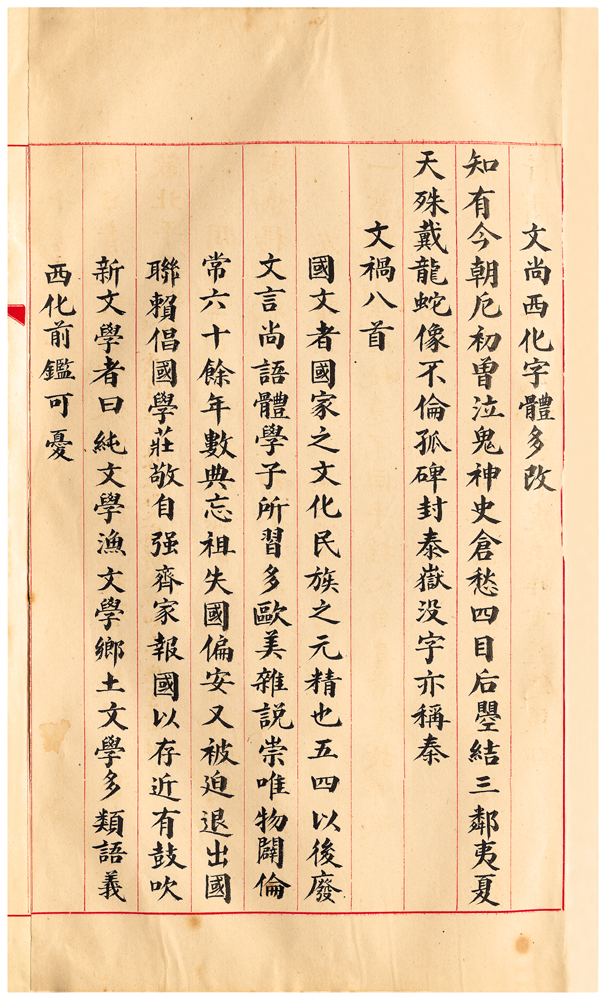 文尚西化字體多改
知有今朝厄初曾泣鬼神史倉愁四目后曌結三鄰夷夏
天殊戴龍蛇像不倫孤碑封泰嶽没字亦稱秦
文禍八首
國文者國家之文化民族之元精也五四以後廢
文言尚語體學子所習多歐美雜説崇唯物闢倫
常六十餘年數典忘祖失國偏安又被迫退出國
聯賴倡國學莊敬自强齊家報國以存近有鼓吹
新文學者曰純文學漁文學鄉土文學多類語義
西化前鑑可憂